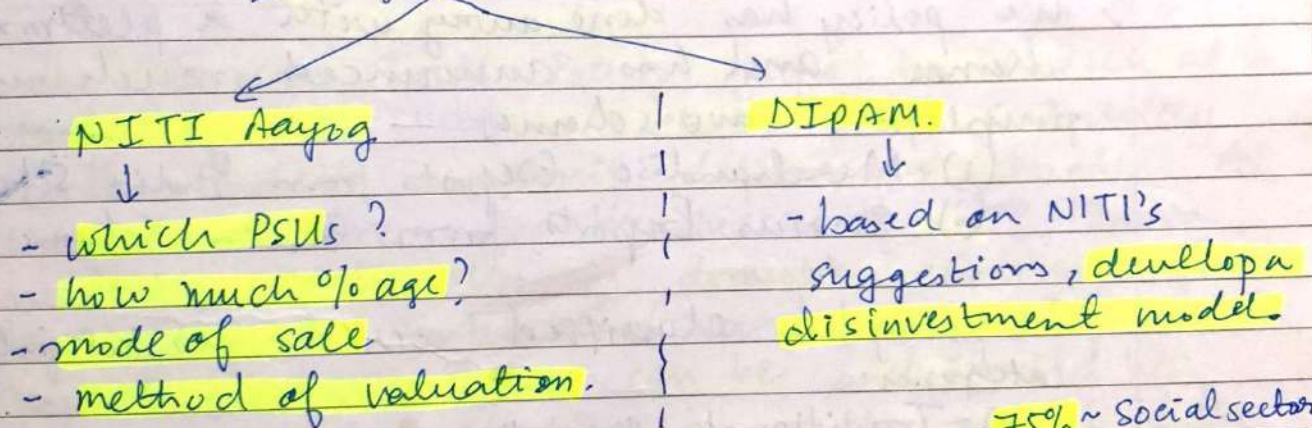 NITI Aayog
- which PSUs?
- how much %age?
- mode of sale
- method of valuation.
DIPAM.
- based on NITI's
suggestions, develop a
disinvestment model.
75% ~ Social sector